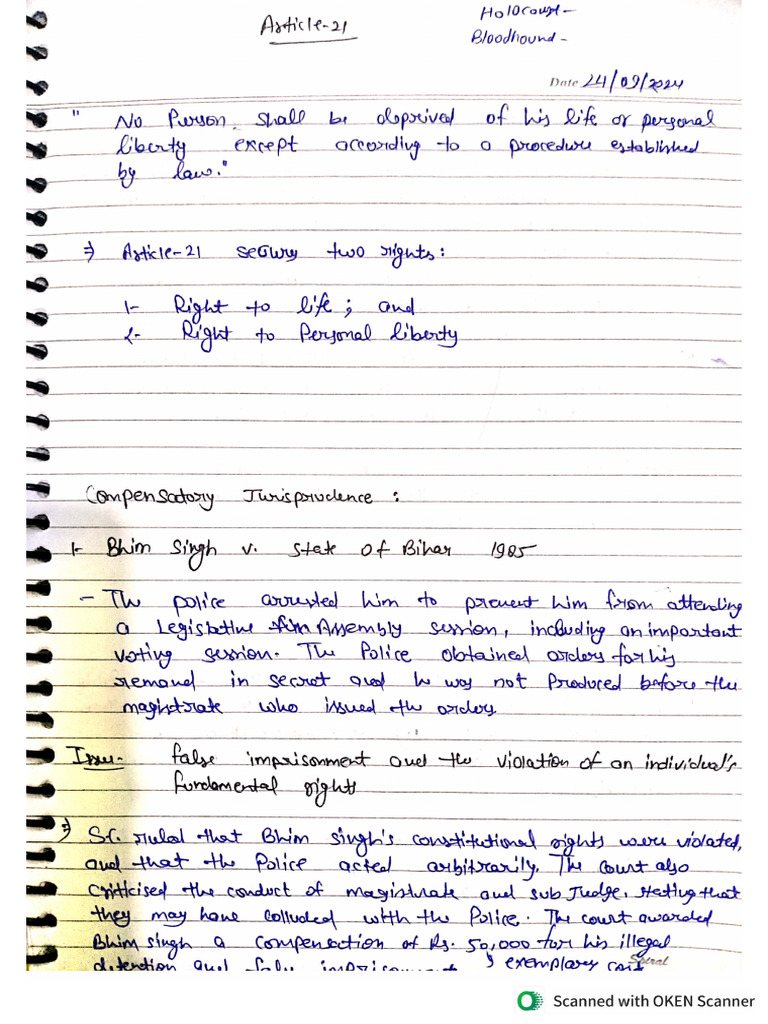 Article-21
Holocaust-
Bloodhound-
Date 24/09/2024
" No Person, shall be deprived of his life or personal
liberty except according to a procedure established
by law."
⇒ Article-21 secures two rights:
1- Right to life; and
2- Right to Personal liberty
Compensatory Jurisprudence :
1- Bhim Singh v. State of Bihar 1985
- The police arrested him to prevent him from attending
a Legislative Assembly session, including an important
voting session. The Police obtained orders for his
remand in secret and he was not Produced before the
magistrate who issued the orders
Issue- false imprisonment and the violation of an individual's
fundamental rights
⇒ SC. ruled that Bhim Singh's constitutional rights were violated,
and that the Police acted arbitrarily. The court also
criticised the conduct of magistrate and sub Judge, stating that
they may have colluded with the Police. The court awarded
Bhim singh a compensation of Rs. 50,000 for his illegal
detention and false imprisonment & exemplary cost
Spiral
Scanned with OKEN Scanner